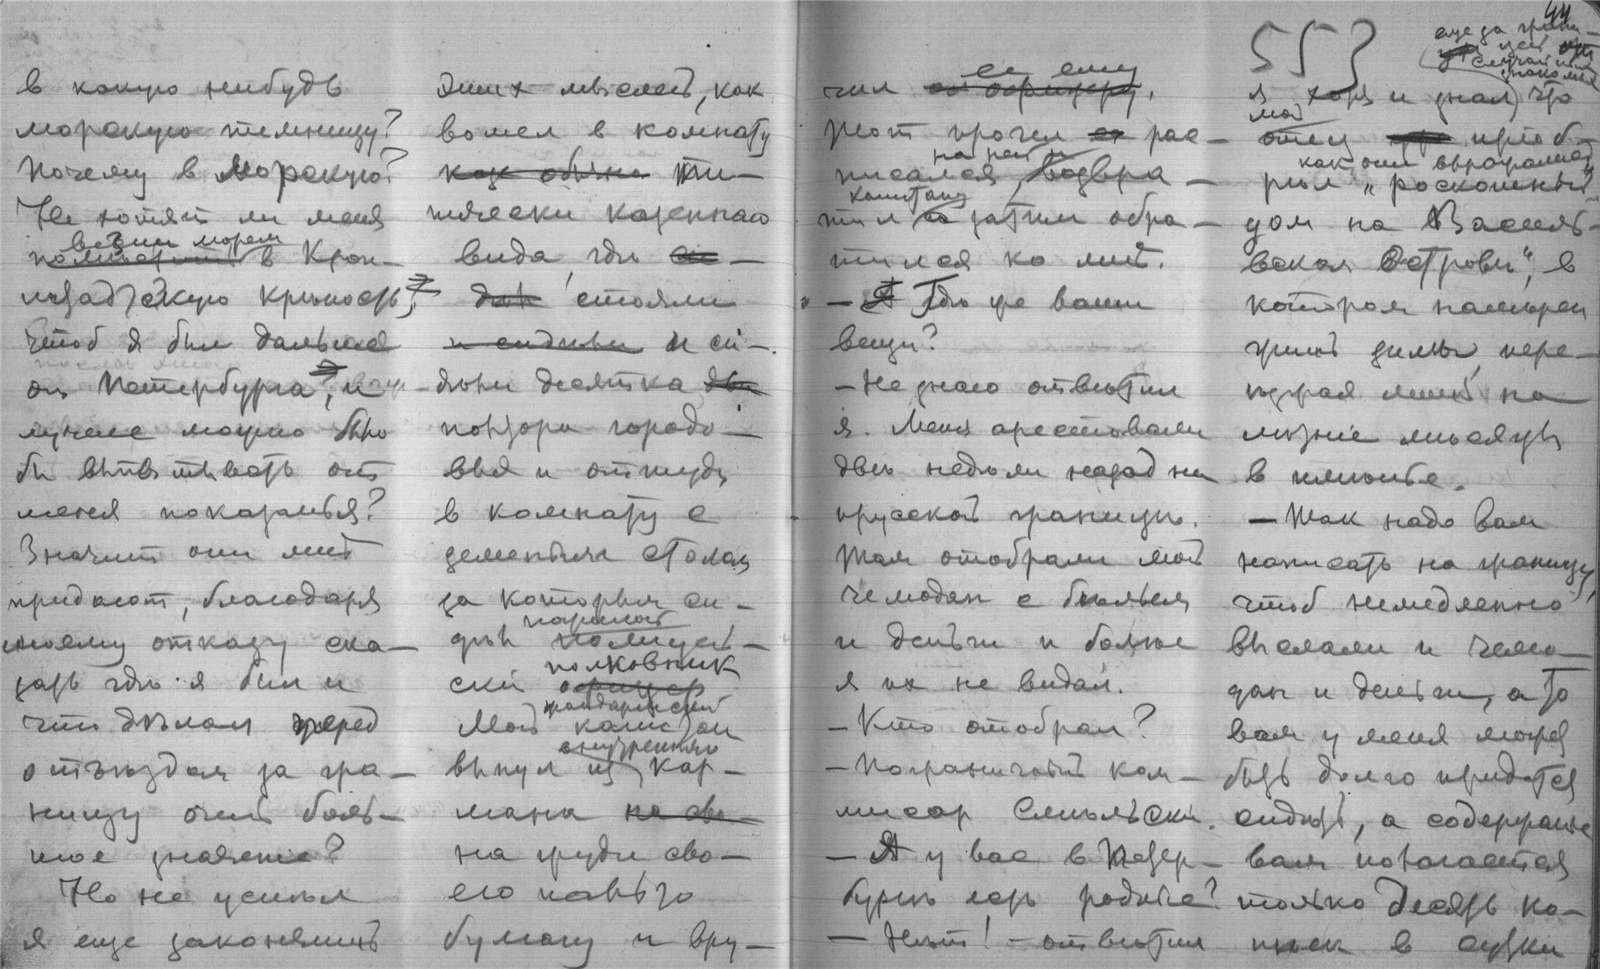 в какую нибудь
морскую темницу?
Почему в морскую?
Не хотят ли меня
везти морем
в Крон-
штадтскую крѣпость,
чтоб я был дальше
от Петербурга, и
лучше можно было
бы вывѣтывать от
меня показанья?
Значит они мнѣ
придают, благодаря
моему отказу ска-
зать гдѣ я был и
что дѣлал перед
отъѣздом за гра-
ницу очень боль-
шое значение?
Но не успѣл
я еще закончить
этих мыслей, как
вошел в комнату
как обычно ти-
пически казеннаго
вида, гдѣ
стояли
и сидѣли и си-
дѣли десятка два
позора городо-
выя и оттуда
в комнату с
столом
за которым си-
дѣл полицей-
полковник
ский офицер
жандармский
Мой капитан
внутренняго
вынул из кар-
мана на сво-
на груди сво-
его
бумагу и вру-
чил ее ему
офицеру.
Тот прочел ее рас-
на ней и
писался, возвра-
капитану
тил и затѣм обра-
тился ко мнѣ.
— А Гдѣ же ваши
вещи?
— Не знаю отвѣтил
я. Меня арестовали
двѣ недѣли назад на
прусской границѣ.
Там отобрали мой
чемодан с бѣльем
и деньги и больше
я их не видал.
— Кто отобрал?
— Пограничный ком-
мисар Смѣльский.
— А у вас в Петер-
бургѣ есть родные?
— Нѣт! — отвѣтил
44
553
еще за грани-
цей
случайно
я хотя и знал, что
мой
отец приоб-
как они выражались
рѣл „роскошный
дом на Василь-
евском Островѣ“, в
котором намѣрен
жить зимы, пере-
ѣзжая лишь на
лѣтние мѣсяцы
в имѣние.
— Так надо вам
написать на границу,
чтоб немедленно
выслали и чемо-
дан и деньги, а то
вам у меня может
быть долго придется
сидѣть, а содержанье
вам полагается
только десять ко-
пѣек в сутки